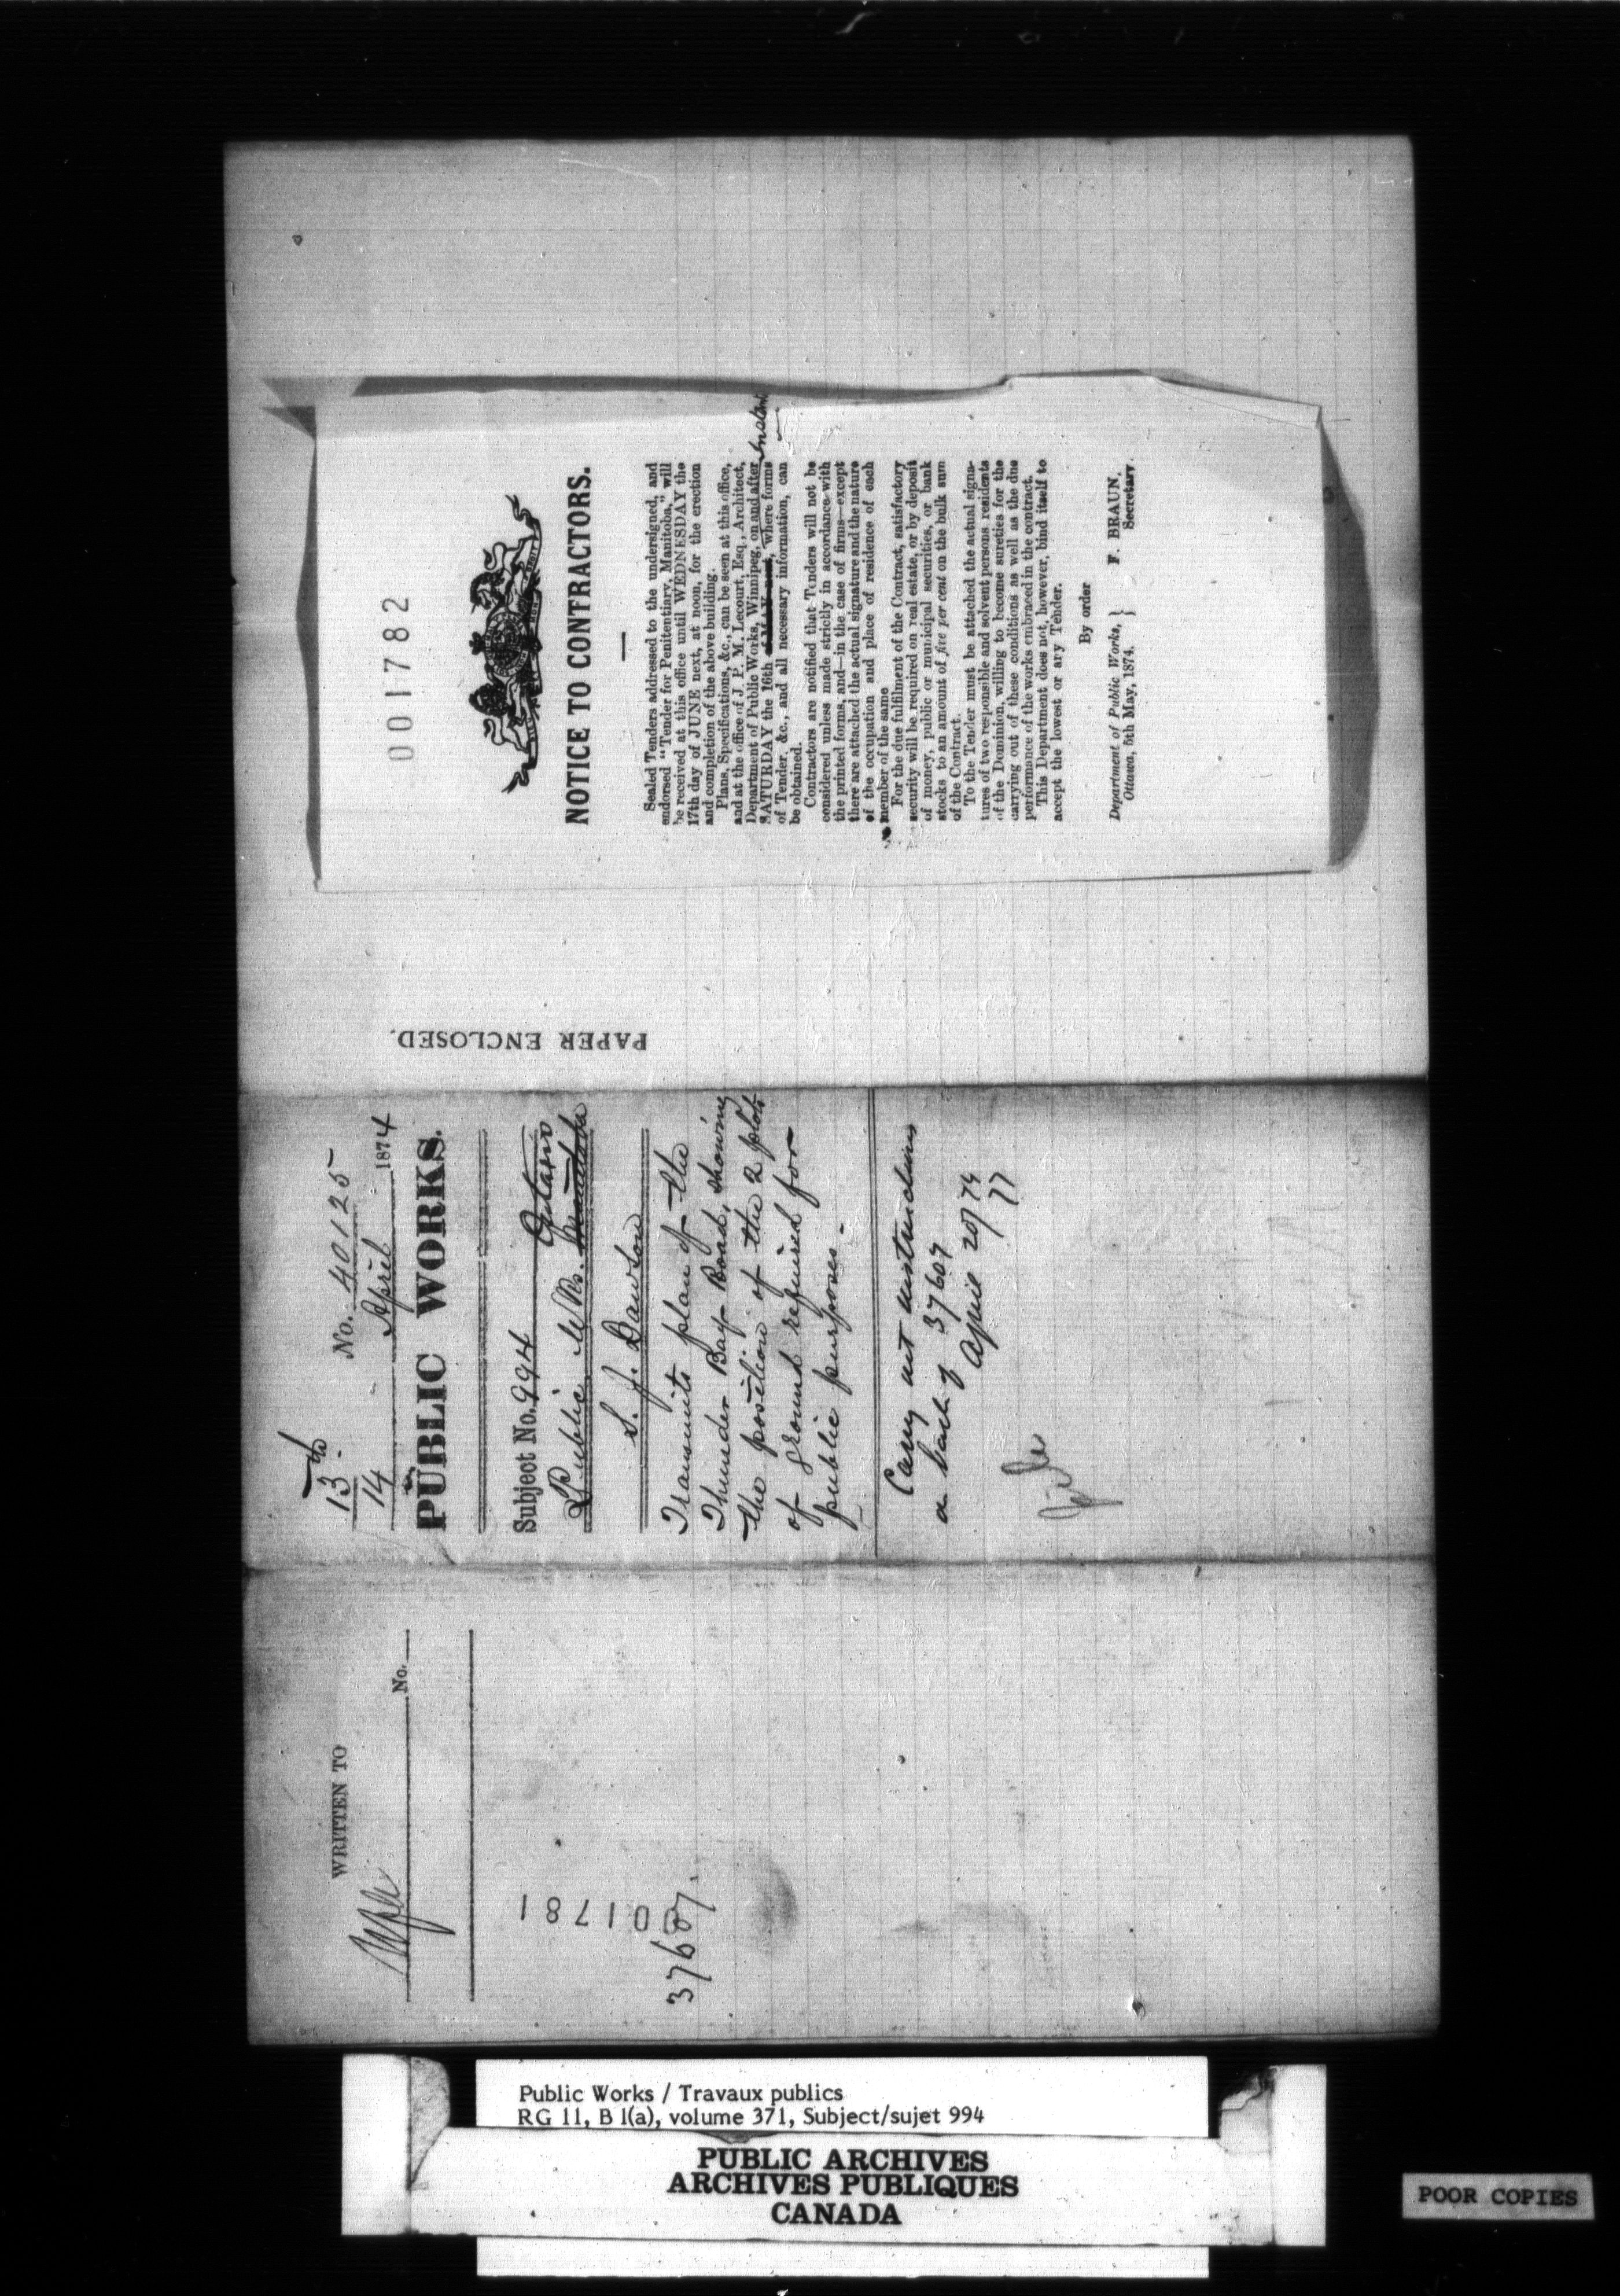 001782
NOTICE TO CONTRACTORS.
Sealed Tenders addressed to the undersigned, and
endorsed "Tender for Penitentiary, Manitoba," will
be received at this office until WEDNESDAY the
17th day of JUNE next, at noon, for the erection
and completion of the above building.
Plans, Specifications, &c., can be seen at this office,
and at the office of J. P. M. Lecourt, Esq., Architect,
Department of Public Works, Winnipeg, on and after
SATURDAY the 16th of MAY next, where forms Instant
of Tender, &c., and all necessary information, can
be obtained.
Contractors are notified that Tenders will not be
considered unless made strictly in accordance with
the printed forms, and—in the case of firms—except
there are attached the actual signature and the nature
of the occupation and place of residence of each
member of the same
For the due fulfilment of the Contract, satisfactory
security will be required on real estate, or by deposit
of money, public or municipal securities, or bank
stocks to an amount of five per cent on the bulk sum
of the Contract.
To the Tender must be attached the actual signa-
tures of two responsible and solvent persons residents
of the Dominion, willing to become sureties for the
carrying out of these conditions as well as the due
performance of the works embraced in the contract.
This Department does not, however, bind itself to
accept the lowest or any Tender.
By order
F. BRAUN,
Secretary.
Department of Public Works, }
Ottawa, 5th May, 1874.
PAPER ENCLOSED.
13th
14
No. 40125
April 1874
PUBLIC WORKS.
Subject No. 994 Ontario
Public Wks. Manitoba
S. J. Dawson
Transmits plan of the
Thunder Bay Road, showing
the position of the 2 plots
of ground required for
public purposes.
Carry out instructions
on back of 37607
April 20/74
WRITTEN TO
No.
001781
37607.
Public Works / Travaux publics
RG 11, B 1(a), volume 371, Subject/sujet 994
PUBLIC ARCHIVES
ARCHIVES PUBLIQUES
CANADA
POOR COPIES